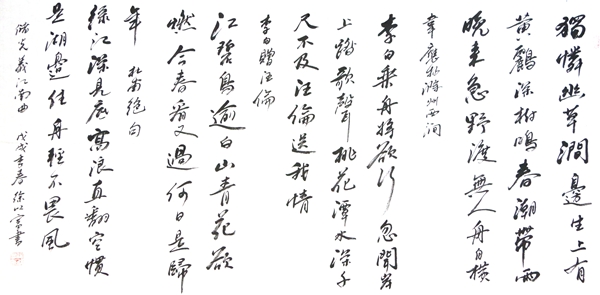 獨憐幽草澗邊生上有
黄鸝深樹鳴春潮帶雨
晚来急野渡無人舟自橫
韋應物滁州西澗
李白乘舟將欲行忽聞岸
上踏歌聲桃花潭水深千
尺不及汪倫送我情
李白贈汪倫
江碧鳥逾白山青花欲
燃今春看又過何日是歸
年 杜甫絕句
綠江深見底高浪直翻空慣
是湖邊住舟輕不畏風
儲光羲江南曲 戊戌春徐以書